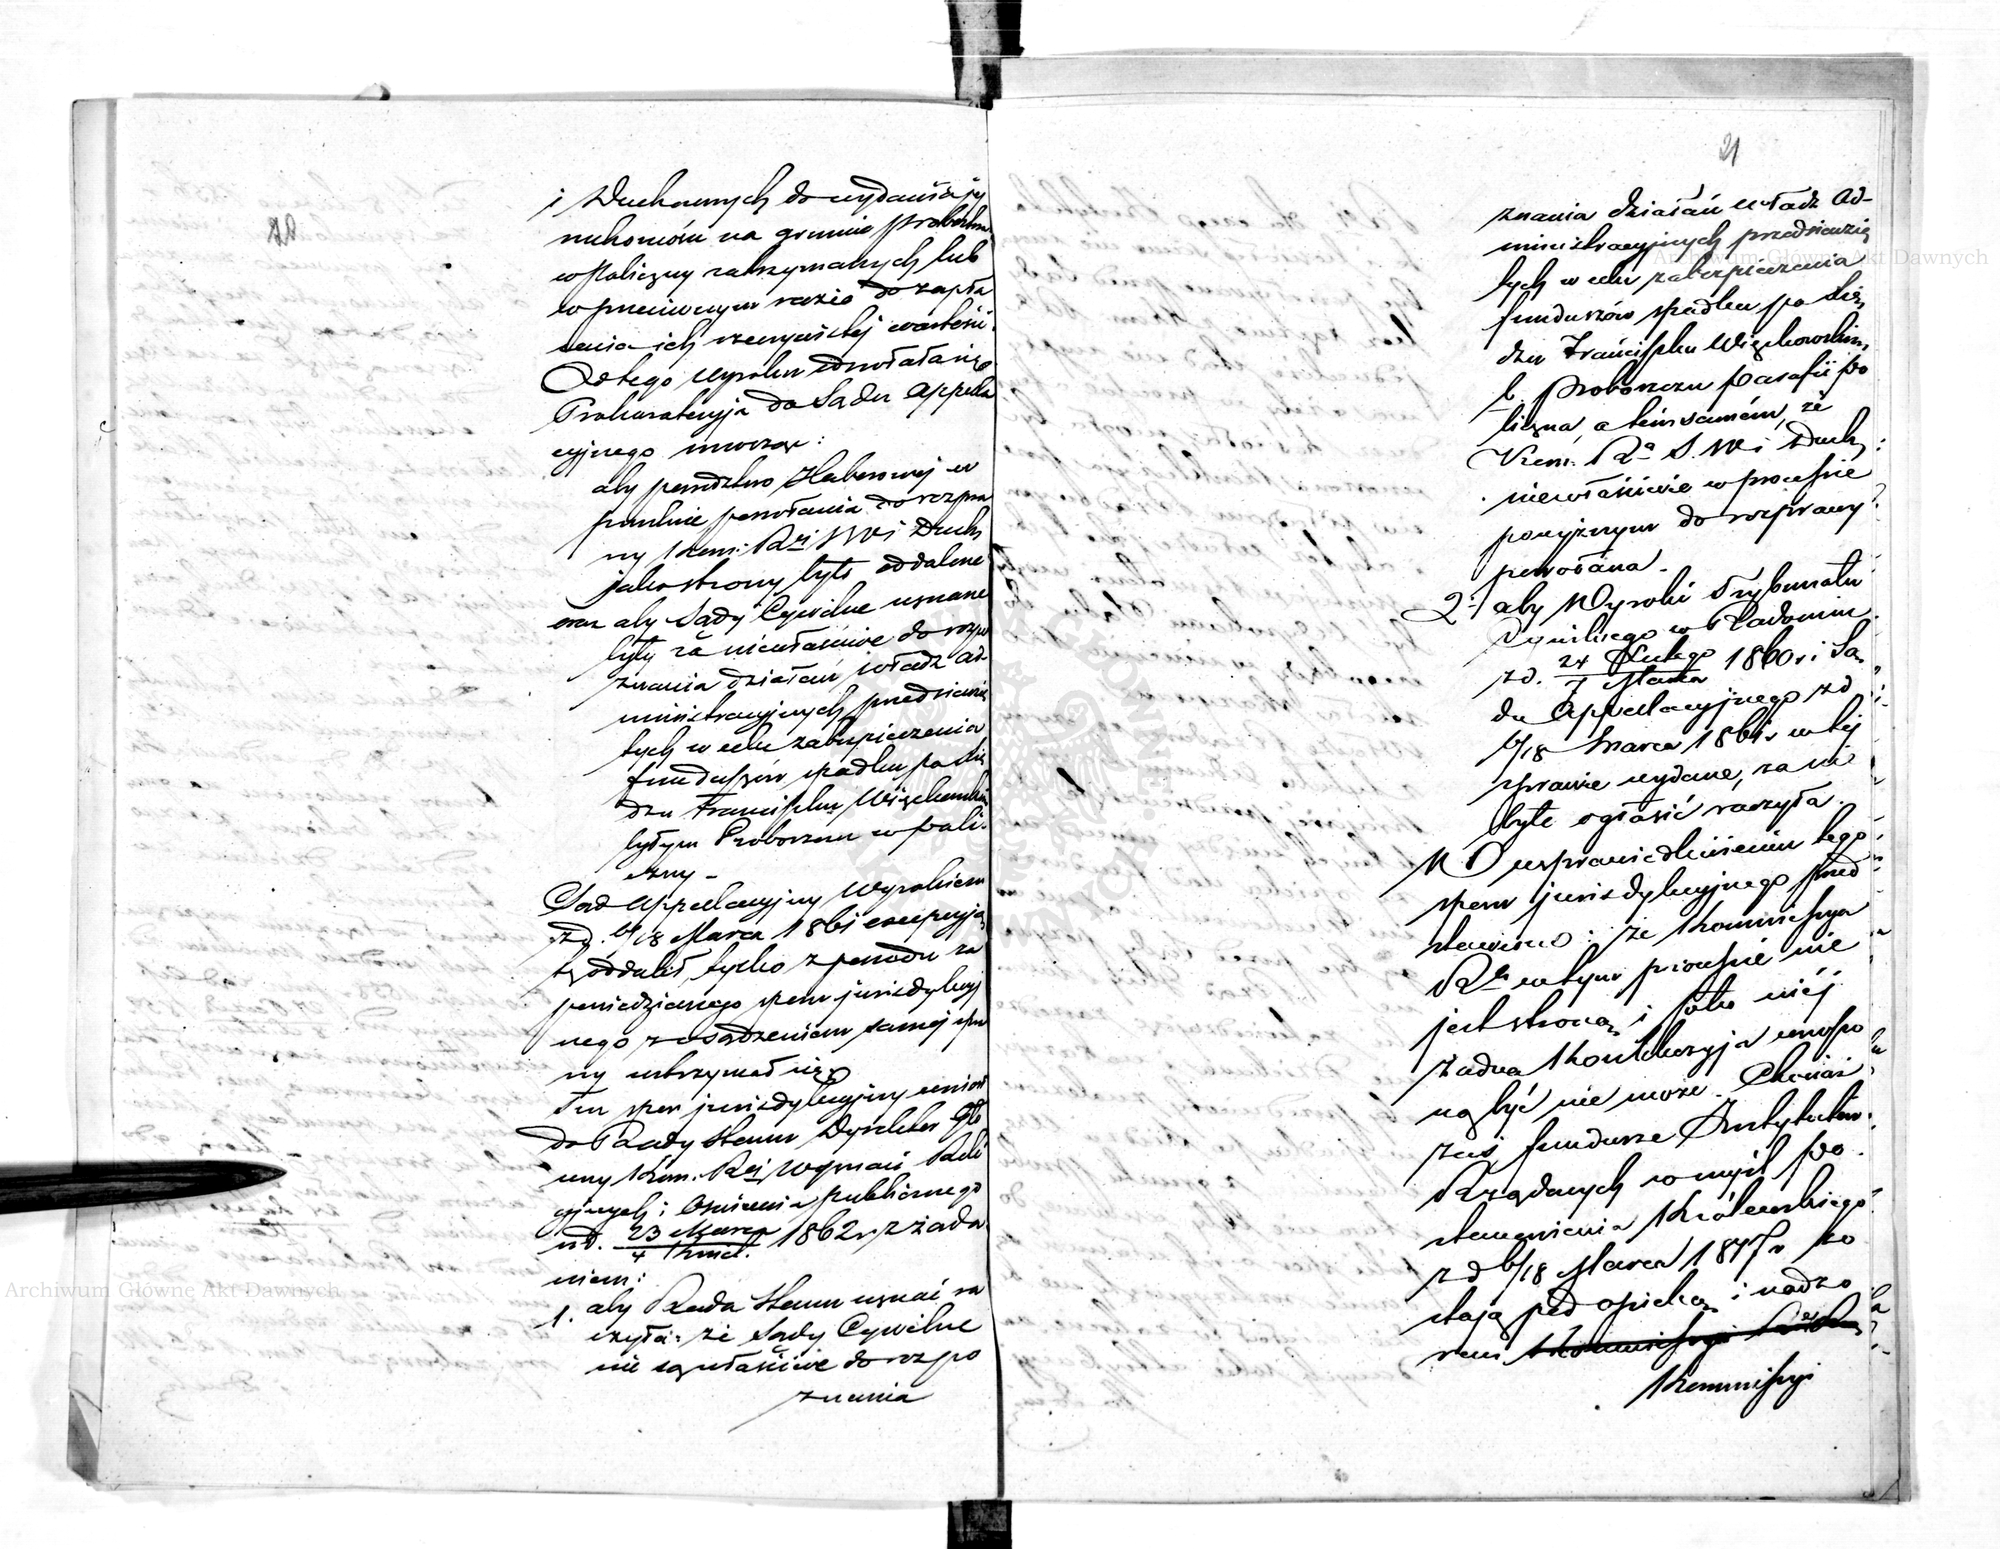 i Duchownych do wydania jej
ruchomości na gruncie probostwa
w Policzny zatrzymanych lub
w przeciwnym razie do zapła
cenia ich rzeczywistej wartości.
Od tego Wyroku odwołała się
Prokuratoryja do Sądu Appella
cyjnego wnosząc:
aby powództwo Haberowej w
przedmiocie powołania do rozpra
wy Kom: Rzej SW i Duch:
jako strony było oddalone
oraz aby Sądy Cywilne uznane
były za niewłaściwe do rozpo
znania działań władz ad-
ministracyjnych przedsięwzię
tych w celu zabezpieczenia
funduszów spadku po Xię
dzu Franciszku Więckowskim
byłym Proboszczu w Poli-
czny -
Sąd Appellacyjny Wyrokiem
z d. 6/18 Marca 1861 excepcyją
tę oddalił, tylko z powodu za
powiedzianego sporu jurisdykcyj
nego z osądzeniem samej spra
wy wstrzymał się.
Ten spór jurisdykcyjny wniósł
do Rady Stanu Dyrektor Głó
wny Kom. Rej Wyznań Reli
gijnych i Oświecenia publicznego
pod d. 23 Marca / 4 Kwiet. 1862 r. z żąda
niem:
1. aby Rada Stanu uznać ra
czyła: że Sądy Cywilne
nie są właściwe do rozpo
znania
21
znania działań władz ad-
ministracyjnych przedsięwzię
tych w celu zabezpieczenia
funduszów spadku po Xię
dzu Franciszku Więckowskim
b. Proboszczu parafii Po
liczna, a tem samem, że
Kom. Ra S. W i Duch:
niewłaściwie w procesie
powyższym do rozprawy
powołana -
2. aby Wyroki Trybunału
Cywilnego w Radomiu
z d. 24 Lutego / 7 Marca 1860 r. i Są
du Appellacyjnego z d
6/18 Marca 1861 r. w tej
sprawie wydane, za nie
byłe ogłosić raczyła.
W usprawiedliwieniu tego
sporu jurisdykcyjnego przed
stawiono: że Kommissya
Rwa w tym procesie nie
jest stroną i jako niej
żadna Konkluzyja wnoszo
ną być nie może. Chociaż
zaś fundusze Instytutów
Rządowych w myśl Po
stanowienia Królewskiego
z d 6/18 Marca 1817 r zo
stają pod opieką i nadzo
rem Kommissyi Rządow
Kommissyi